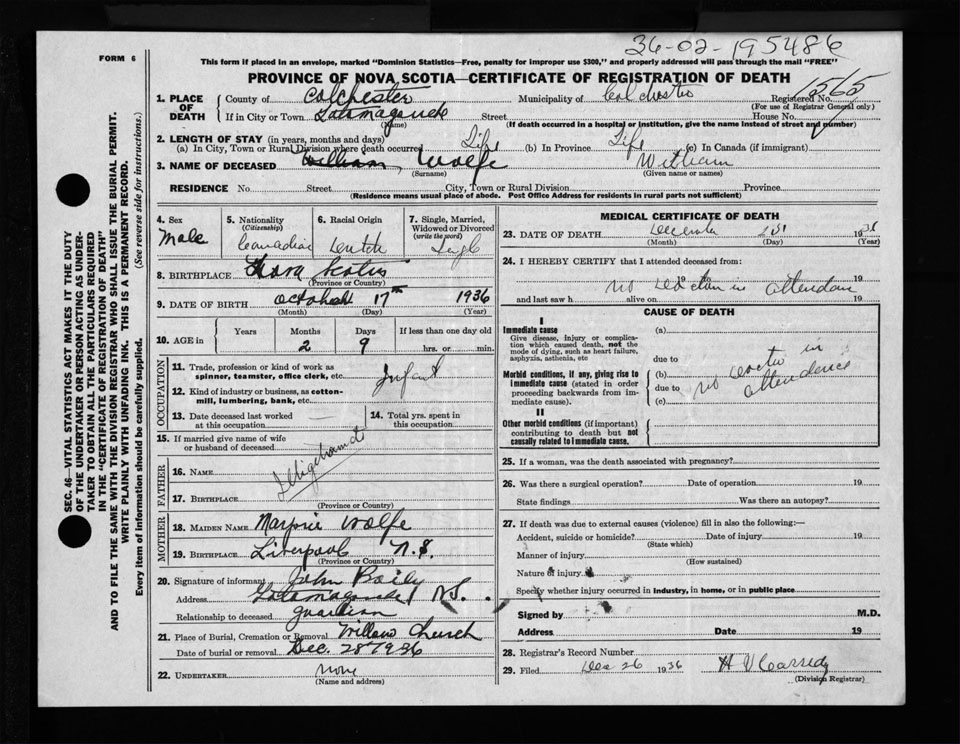 36-02-195486
FORM 6
This form if placed in an envelope, marked "Dominion Statistics—Free, penalty for improper use $300," and properly addressed will pass through the mail "FREE"
PROVINCE OF NOVA SCOTIA—CERTIFICATE OF REGISTRATION OF DEATH
1. PLACE OF DEATH County of Colchester Municipality of Colchester Registered No. 1565
(For use of Registrar General only)
If in City or Town Street House No.
(Name) (If death occurred in a hospital or institution, give the name instead of street and number)
2. LENGTH OF STAY (in years, months and days)
(a) In City, Town or Rural Division where death occurred Life (b) In Province Life (c) In Canada (if immigrant)
3. NAME OF DECEASED William Wolfe William
(Surname) (Given name or names)
RESIDENCE No. Street City, Town or Rural Division Province
(Residence means usual place of abode. Post Office Address for residents in rural parts not sufficient)
4. Sex Male
5. Nationality (Citizenship) Canadian
6. Racial Origin Dutch
7. Single, Married, Widowed or Divorced (write the word) Single
8. BIRTHPLACE Nova Scotia
(Province or Country)
9. DATE OF BIRTH October 17th 1936
(Month) (Day) (Year)
10. AGE in Years Months 2 Days 9 If less than one day old hrs. or min.
OCCUPATION
11. Trade, profession or kind of work as spinner, teamster, office clerk, etc. Infant
12. Kind of industry or business, as cotton-mill, lumbering, bank, etc.
13. Date deceased last worked at this occupation —
14. Total yrs. spent in this occupation
15. If married give name of wife or husband of deceased
FATHER
16. NAME
17. BIRTHPLACE
(Province or Country)
MOTHER
18. MAIDEN NAME Marjorie Wolfe
19. BIRTHPLACE Liverpool N.S.
(Province or Country)
20. Signature of informant John Baily
Address N.S.
Relationship to deceased guardian
21. Place of Burial, Cremation or Removal Willow Church
Date of burial or removal Dec. 28 1936
22. UNDERTAKER none
(Name and address)
MEDICAL CERTIFICATE OF DEATH
23. DATE OF DEATH December 1936
(Month) (Day) (Year)
24. I HEREBY CERTIFY that I attended deceased from:
19 to 19
no doctor in attendance
and last saw h alive on 19
CAUSE OF DEATH
I
Immediate cause (a)
Give disease, injury or complication which caused death, not the mode of dying, such as heart failure, asphyxia, asthenia, etc
due to
Morbid conditions, if any, giving rise to immediate cause (stated in order proceeding backwards from immediate cause).
(b) no doctor in attendence
due to
(c)
II
Other morbid conditions (if important) contributing to death but not causally related to immediate cause.
25. If a woman, was the death associated with pregnancy?
26. Was there a surgical operation? Date of operation 19
State findings Was there an autopsy?
27. If death was due to external causes (violence) fill in also the following:—
Accident, suicide or homicide? Date of injury 19
(State which)
Manner of injury
(How sustained)
Nature of injury
Specify whether injury occurred in industry, in home, or in public place
Signed by M.D.
Address Date 19
28. Registrar's Record Number
29. Filed Dec 26 1936
(Division Registrar)
SEC. 46—VITAL STATISTICS ACT MAKES IT THE DUTY
OF THE UNDERTAKER OR PERSON ACTING AS UNDER-
TAKER TO OBTAIN ALL THE PARTICULARS REQUIRED
IN THE "CERTIFICATE OF REGISTRATION OF DEATH"
AND TO FILE THE SAME WITH THE DIVISION REGISTRAR WHO SHALL ISSUE THE BURIAL PERMIT.
WRITE PLAINLY WITH UNFADING INK. THIS IS A PERMANENT RECORD.
Every item of information should be carefully supplied. (See reverse side for instructions.)